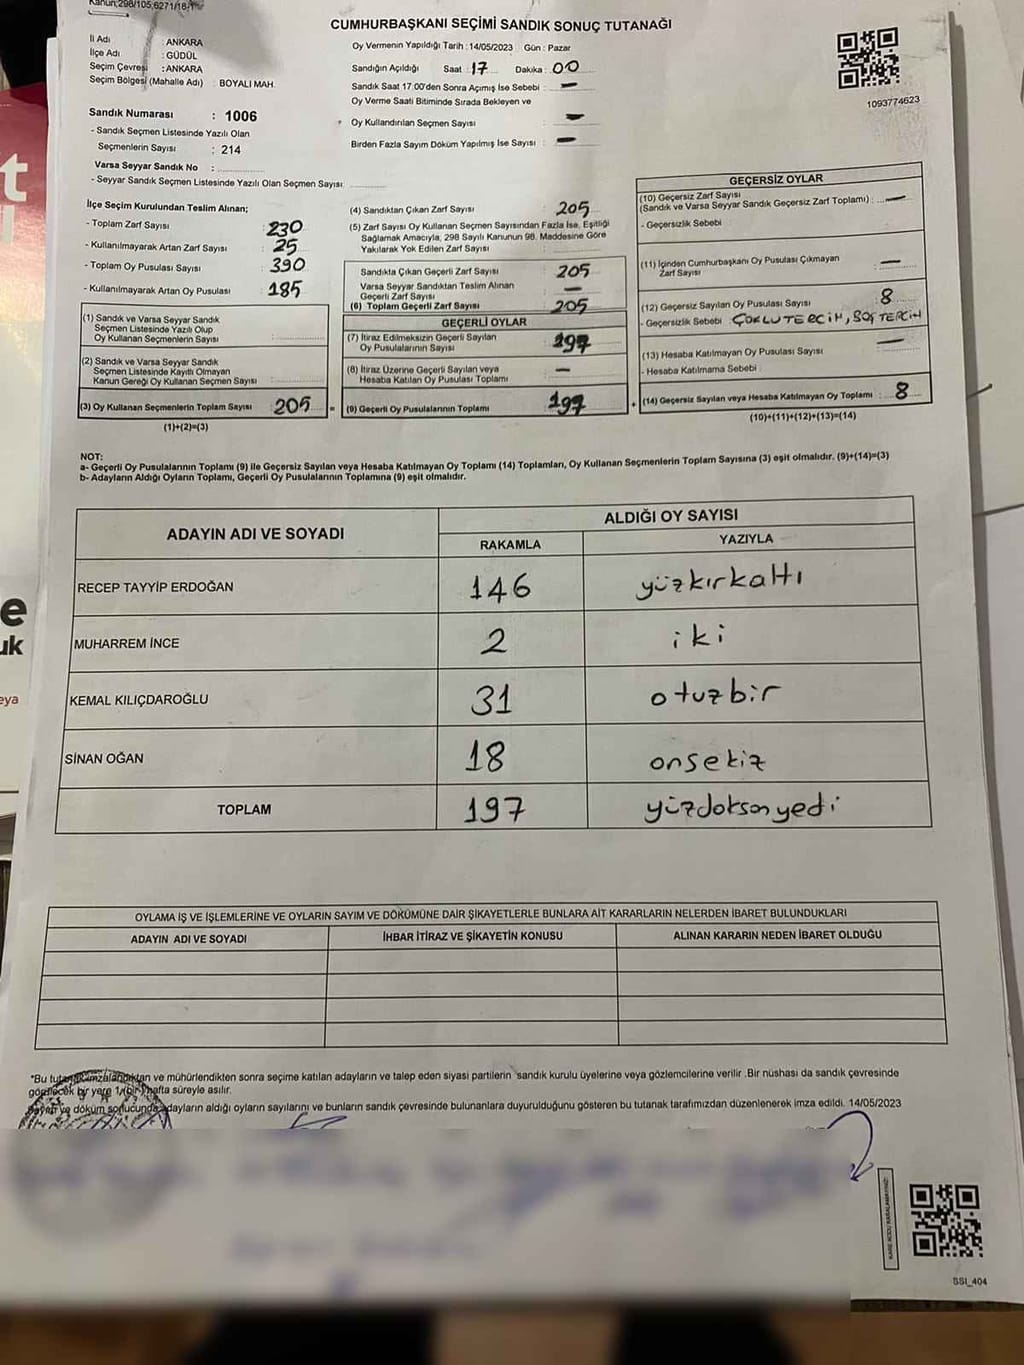 Kanun;298/105,6271/18-1
CUMHURBAŞKANI SEÇİMİ SANDIK SONUÇ TUTANAĞI
İl Adı : ANKARA
İlçe Adı : GÜDÜL
Seçim Çevresi : ANKARA
Seçim Bölgesi (Mahalle Adı) : BOYALI MAH.
Sandık Numarası : 1006
- Sandık Seçmen Listesinde Yazılı Olan
Seçmenlerin Sayısı : 214
Varsa Seyyar Sandık No :
- Seyyar Sandık Seçmen Listesinde Yazılı Olan Seçmen Sayısı:
Oy Vermenin Yapıldığı Tarih : 14/05/2023 Gün : Pazar
Sandığın Açıldığı Saat : 17 Dakika : 00
Sandık Saat 17.00'den Sonra Açmış İse Sebebi : —
Oy Verme Saati Bitiminde Sırada Bekleyen ve
Oy Kullandırılan Seçmen Sayısı : —
Birden Fazla Sayım Döküm Yapılmış İse Sayısı : —
1093774623
İlçe Seçim Kurulundan Teslim Alınan;
- Toplam Zarf Sayısı : 230
- Kullanılmayarak Artan Zarf Sayısı : 25
- Toplam Oy Pusulası Sayısı : 390
- Kullanılmayarak Artan Oy Pusulası : 185
(1) Sandık ve Varsa Seyyar Sandık
Seçmen Listesinde Yazılı Olup
Oy Kullanan Seçmenlerin Sayısı :
(2) Sandık ve Varsa Seyyar Sandık
Seçmen Listesinde Kayıtlı Olmayan
Kanun Gereği Oy Kullanan Seçmen Sayısı :
(3) Oy Kullanan Seçmenlerin Toplam Sayısı : 205
(1)+(2)=(3)
(4) Sandıktan Çıkan Zarf Sayısı : 205
(5) Zarf Sayısı Oy Kullanan Seçmen Sayısından Fazla İse, Eşitliği
Sağlamak Amacıyla, 298 Sayılı Kanunun 98. Maddesine Göre
Yakılarak Yok Edilen Zarf Sayısı :
Sandıkta Çıkan Geçerli Zarf Sayısı : 205
Varsa Seyyar Sandıktan Teslim Alınan
Geçerli Zarf Sayısı : —
(6) Toplam Geçerli Zarf Sayısı : 205
GEÇERLİ OYLAR
(7) İtiraz Edilmeksizin Geçerli Sayılan
Oy Pusulalarının Sayısı : 197
(8) İtiraz Üzerine Geçerli Sayılan veya
Hesaba Katılan Oy Pusulası Toplamı : —
= (9) Geçerli Oy Pusulalarının Toplamı : 197
GEÇERSİZ OYLAR
(10) Geçersiz Zarf Sayısı
(Sandık ve Varsa Seyyar Sandık Geçersiz Zarf Toplamı) : —
- Geçersizlik Sebebi :
(11) İçinden Cumhurbaşkanı Oy Pusulası Çıkmayan
Zarf Sayısı : —
(12) Geçersiz Sayılan Oy Pusulası Sayısı : 8
- Geçersizlik Sebebi : ÇOKLU TERCİH, BOŞ TERCİH
(13) Hesaba Katılmayan Oy Pusulası Sayısı : —
- Hesaba Katılmama Sebebi :
+ (14) Geçersiz Sayılan veya Hesaba Katılmayan Oy Toplamı : 8
(10)+(11)+(12)+(13)=(14)
NOT:
a- Geçerli Oy Pusulalarının Toplamı (9) ile Geçersiz Sayılan veya Hesaba Katılmayan Oy Toplamı (14) Toplamları, Oy Kullanan Seçmenlerin Toplam Sayısına (3) eşit olmalıdır. (9)+(14)=(3)
b- Adayların Aldığı Oyların Toplamı, Geçerli Oy Pusulalarının Toplamına (9) eşit olmalıdır.
ADAYIN ADI VE SOYADI ALDIĞI OY SAYISI
RAKAMLA YAZIYLA
RECEP TAYYİP ERDOĞAN 146 yüzkırkaltı
MUHARREM İNCE 2 iki
KEMAL KILIÇDAROĞLU 31 otuzbir
SİNAN OĞAN 18 onsekiz
TOPLAM 197 yüzdoksanyedi
OYLAMA İŞ VE İŞLEMLERİNE VE OYLARIN SAYIM VE DÖKÜMÜNE DAİR ŞİKAYETLERLE BUNLARA AİT KARARLARIN NELERDEN İBARET BULUNDUKLARI
ADAYIN ADI VE SOYADI İHBAR İTİRAZ VE ŞİKAYETİN KONUSU ALINAN KARARIN NEDEN İBARET OLDUĞU
*Bu tutanak imzalandıktan ve mühürlendikten sonra seçime katılan adayların ve talep eden siyasi partilerin sandık kurulu üyelerine veya gözlemcilerine verilir .Bir nüshası da sandık çevresinde
görülecek bir yere 1 (bir) hafta süreyle asılır.
Sayım ve döküm sonucunda adayların aldığı oyların sayılarını ve bunların sandık çevresinde bulunanlara duyurulduğunu gösteren bu tutanak tarafımızdan düzenlenerek imza edildi. 14/05/2023
KARE KODU KARALAMAYINIZ!
SSI_404
t
e
uk
eya